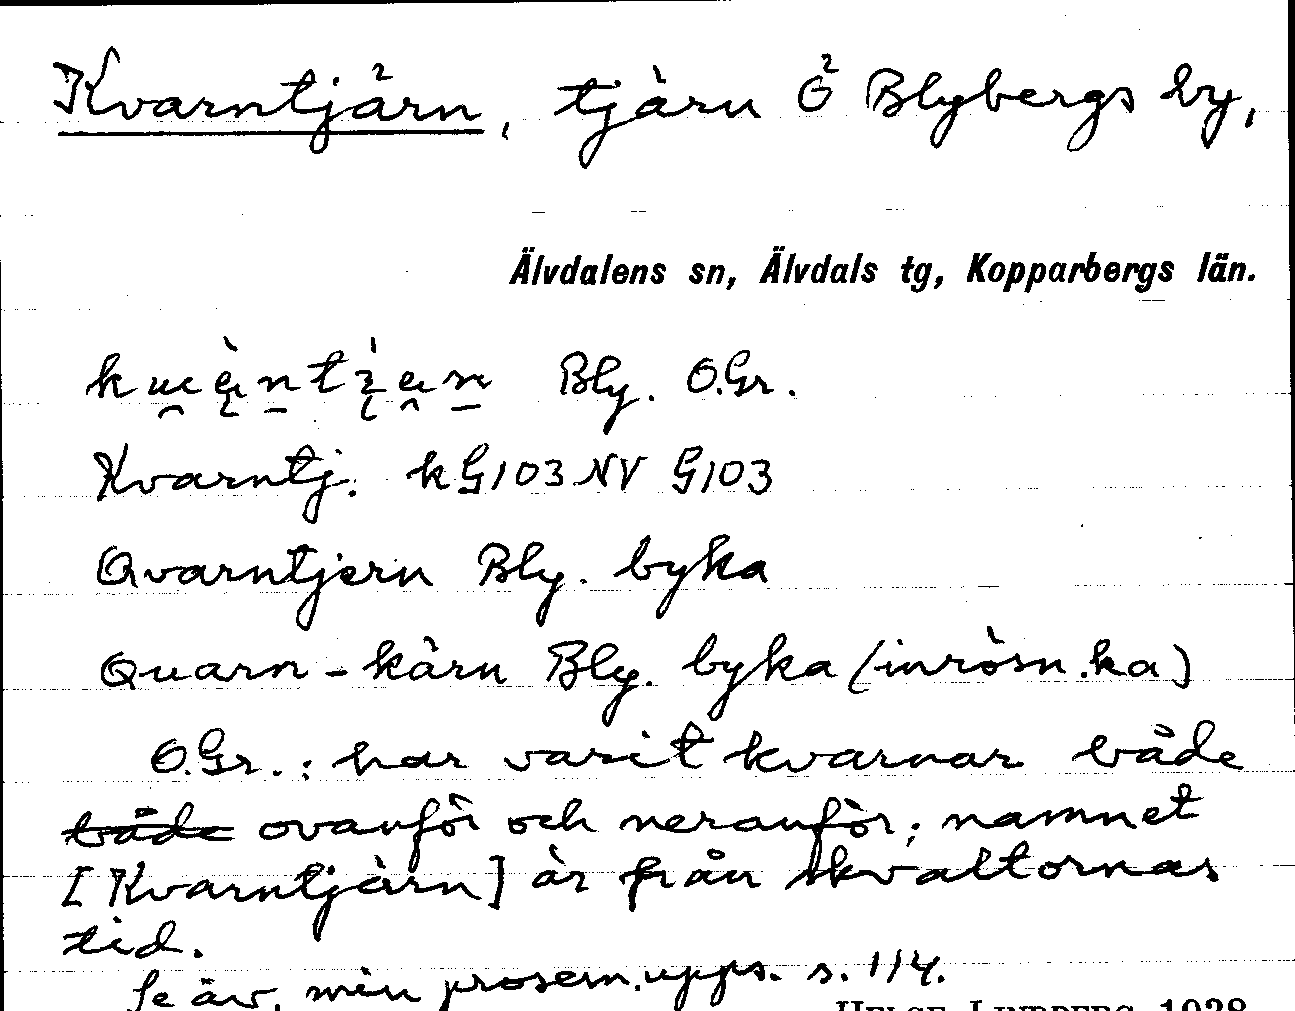 Kvarntjärn, tjärn Ö Blybergs by,
Älvdalens sn, Älvdals tg, Kopparbergs län.
Bly. O.Gr.
Kvarntj. kG103NV G103
Qvarntjern Bly. byka
Quarn-kärn Bly. byka (inrösn.ka)
O.Gr.: har varit kvarnar både
både ovanför och neranför; namnet
[Kvarntjärn] är från skvaltornas
tid.
Se äv. min prosem.upps. s. 114.
HELGE LINDBERG 1938